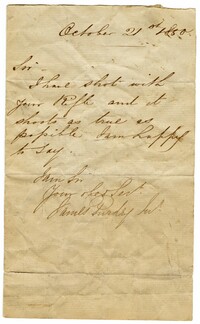 October 21st 1850
Sir
I have shot with
your Rifle and it
shoots as true as
possible I am happy
to say.
I am Sir
Your obed Servt
James